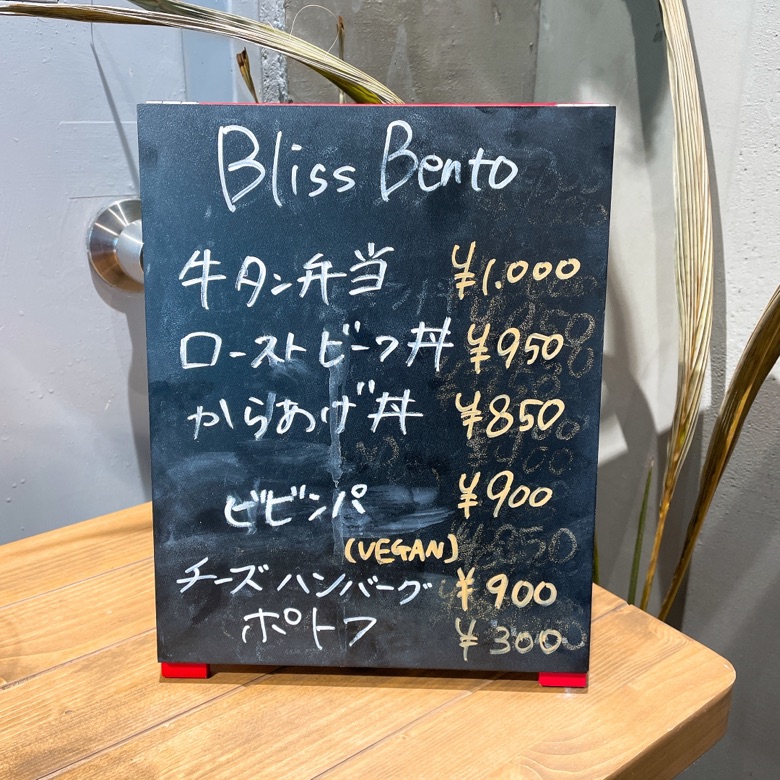 Bliss Bento
牛タン弁当 ¥1.000
ローストビーフ丼 ¥950
からあげ丼 ¥850
ビビンパ ¥900
(VEGAN)
チーズハンバーグ ¥900
ポトフ ¥300